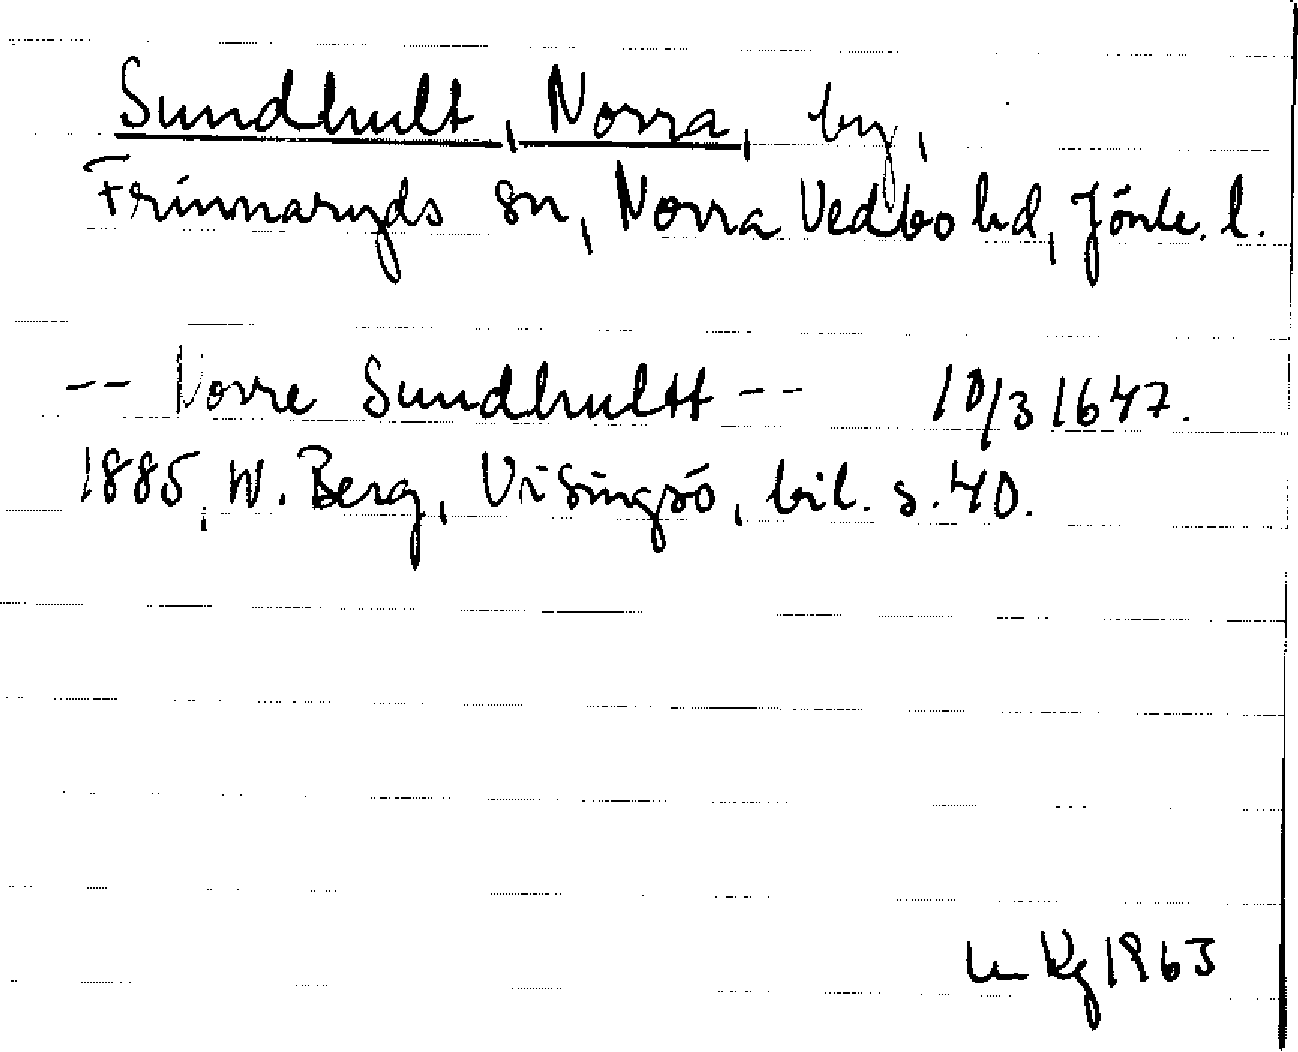 Sundhult, Norra, by,
Frinnaryds sn, Norra Vedbo hd, Jönk. l.
-- Norre Sundhultt -- 10/3 1647.
1885, W. Berg, Visingsö, bil. s. 40.
1963